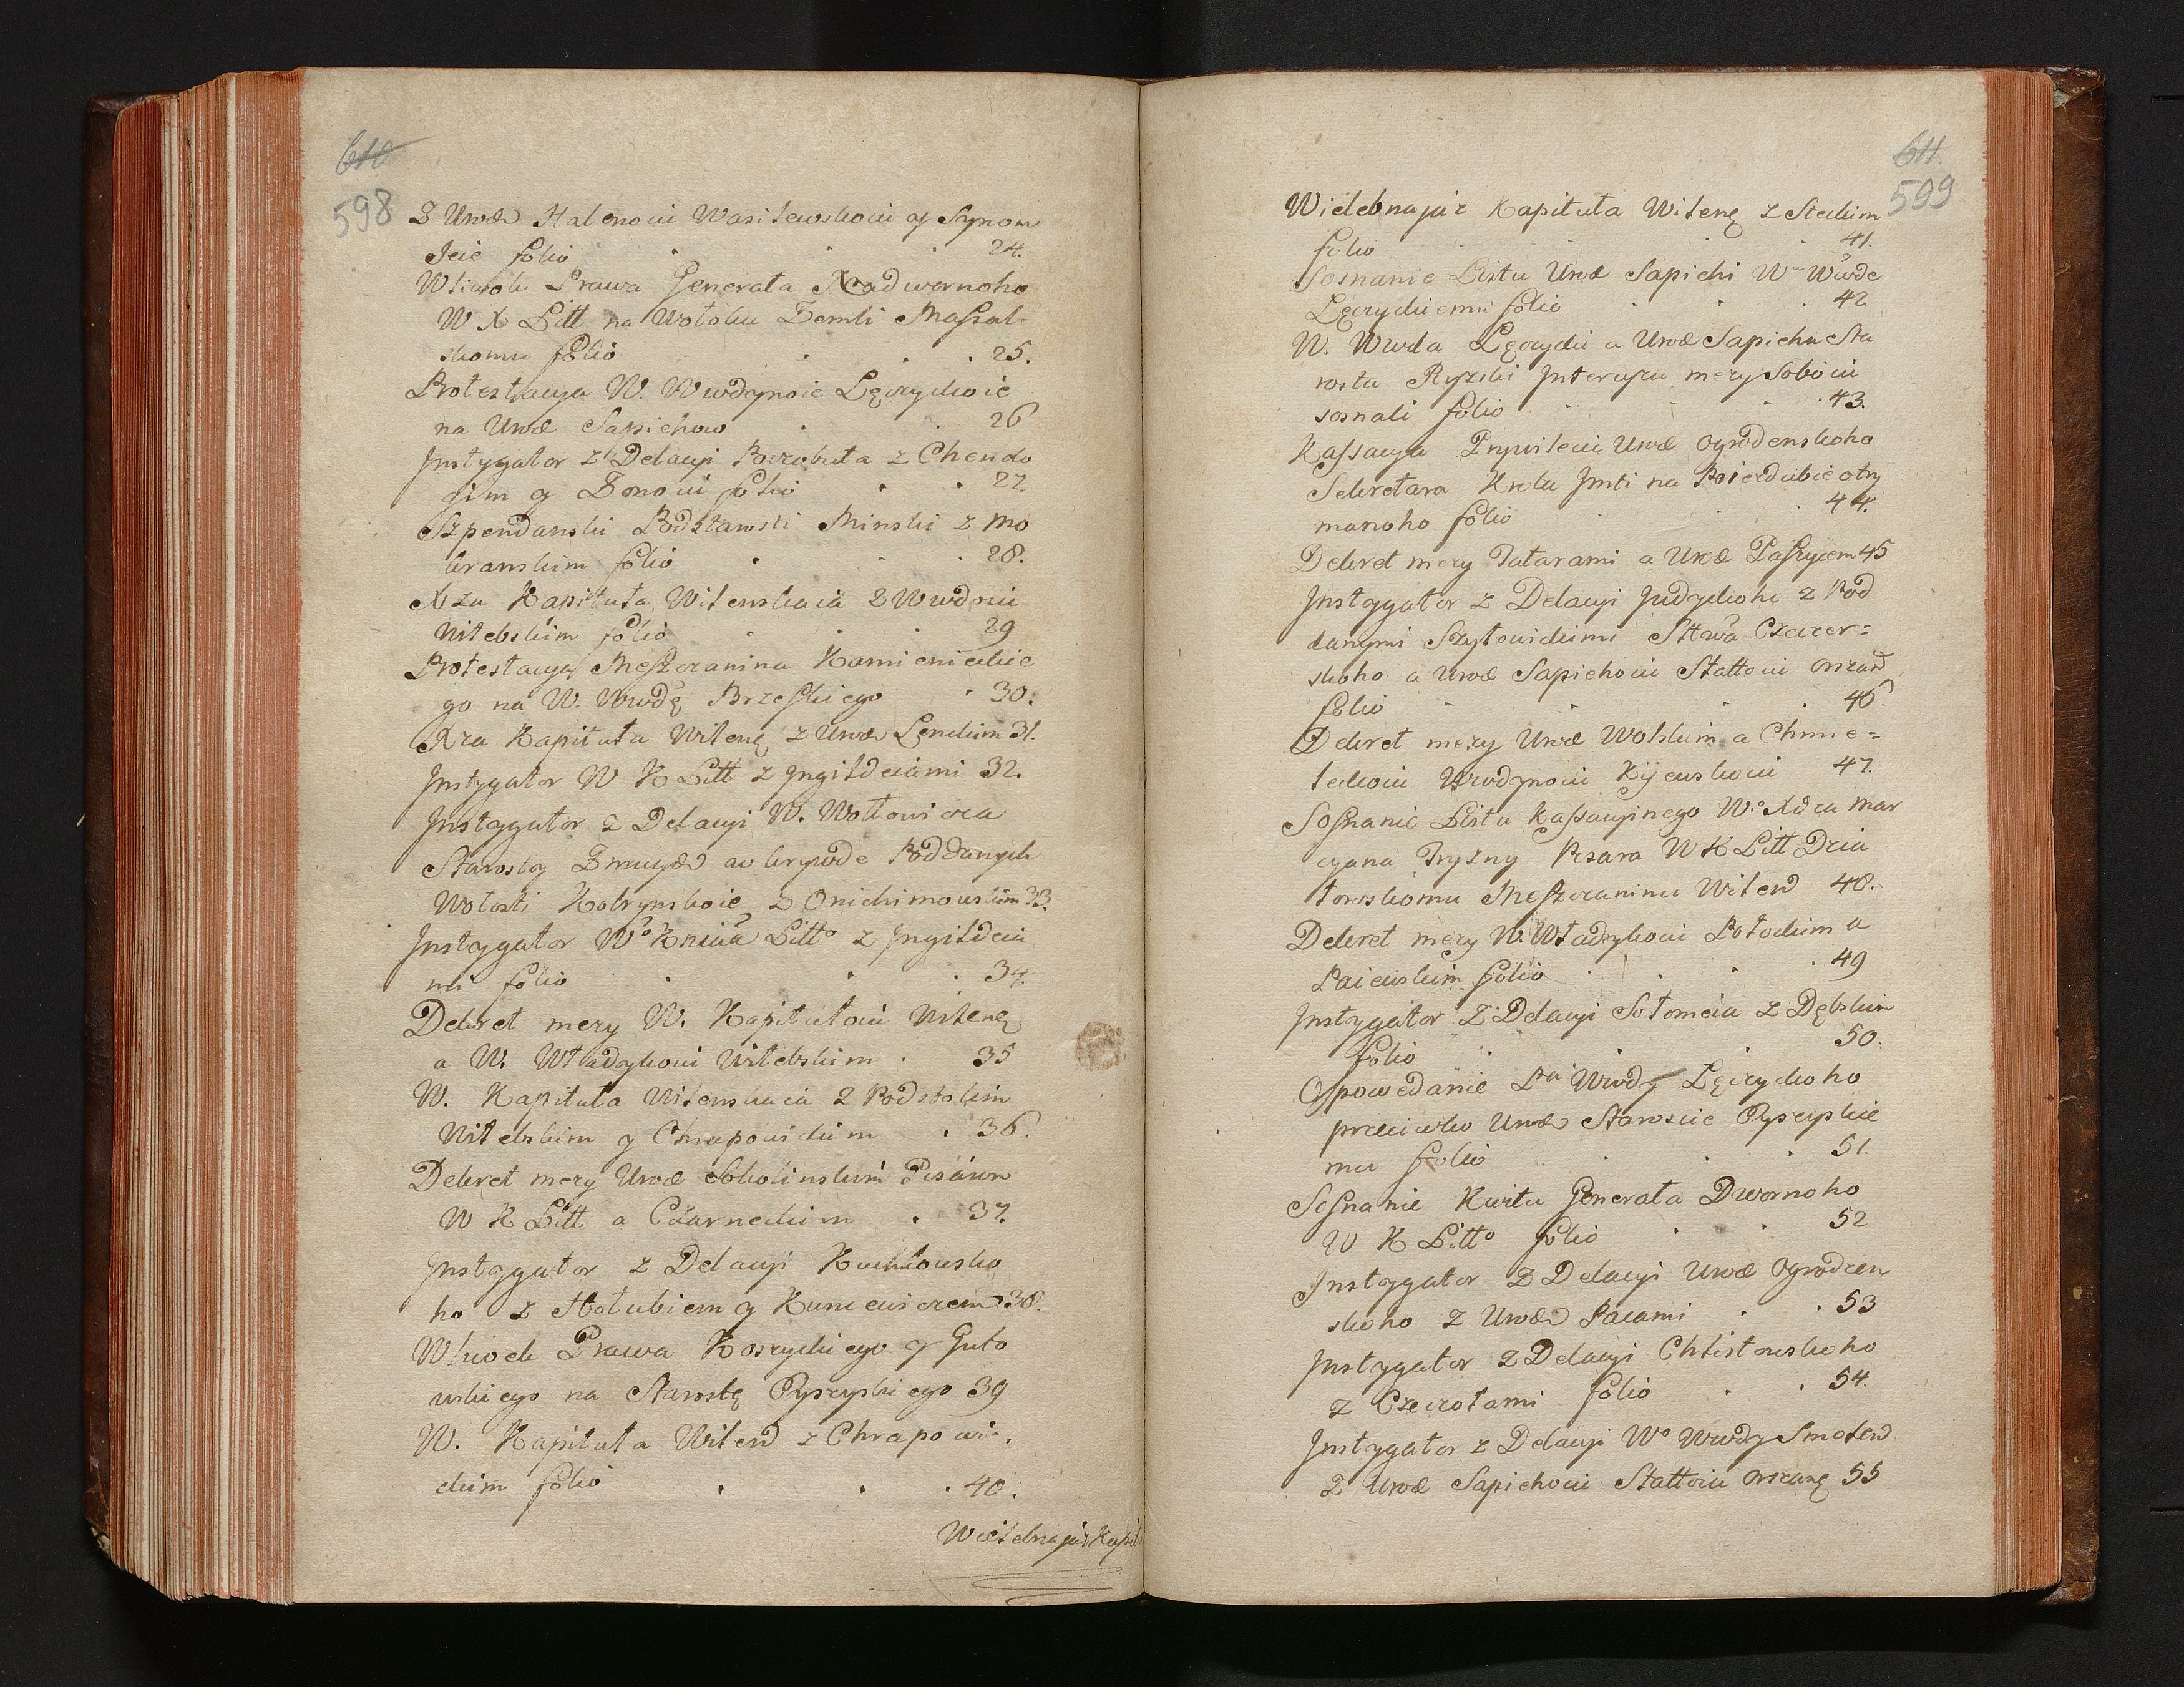 610
598
Z Urod Halenoiu Wasilewskoiu y Synom
Jeie folio 24.
Wliwok Prawa Generała Nadwornoho
W X Litt na Wołoku Zemli Maſsal-
skomu folio 25.
Protestacya W. Wwdzynoie Lęczyckoie
na Urod Sapiehow 26
Jnstygator z Delacyi Powrobuta z Chendo
jim y Żonoiu folio 27.
Szpendawski Podstarosti Minski z Mo
kranskim folio 28.
Xża Kapituła Wilenskaia Z Wwdoiu
Witebskim folio 29
Protestacya Meſzczanina Kamienieckie
go na W. Wwdę Brzeſkiego 30.
Xża Kapituła Wileną z Urod Lenckim 31.
Jnstygator W X Litt z Jngildeiami 32.
Jnstygator z Delacyi W. Wołłowicza
Starosty Żmuyd w krywde Poddanych
Wołosti Kobrynskoie z Onichimowskim 33.
Jnstygator Wº Kniaa Littº z Jngildeia
mi folio 34.
Dekret mezy W. Kapitułoiu Wileną
a W. Władykoiu Witebskim 35
W. Kapituła Wilenskaia z Podstolim
Witebskim y Chrapowickim 36.
Dekret mezy Urod Sokolinskim Pisarom
W X Litt a Czarneckim 37.
Jnstygator z Delacyi Kuchlowsko
ho z Hołubiem y Kuncewiczem 38.
Wliwok Prawa Koszyckiego y Guto
wskiego na Starostę Pyszyskiego 39
W. Kapituła Wilend z Chrapowi-
ckim folio 40.
Wielebnajaż Kapit
611
599
Wielebnajaż Kapituła Wileną z Steckim
folio 41.
Soznanie Listu Urod Sapiehi W Wwde
Lęczyckiemu folio 42
W. Wwda Lęczycki a Urod Sapieha Sta
rosta Ryzski Jntercyzu mezy Soboiu
soznali folio 43.
Kaſsacya Prywileiu Urod Ogrodenskoho
Sekretara Krola Jmti na Poiezdubie otry
manoho folio 44.
Dekret mezy Tatarami a Urod Paſzycem 45
Jnstygator z Delacyi Judyckoho z Pod
danymi Szyłowickimi Sttwa Czeczer=
skoho a Urod Sapiehoiu Stattoiu Orszand
folio 46.
Dekret mezy Urod Wolskim a Chmie=
leckoiu Wwdzynoiu Kijewskoiu 47.
Soſnanie Listu Kaſsacyinego Wº Xdza Mar
cyana Tryzny Pisara W X Litt Dzia
towskomu Meſzczaninu Wilend 48.
Dekret mezy W. Władykoiu Połockim a
Paiewskim folio 49
Jnstygator z Delacyi Sołomeia z Dębskim
folio 50.
Opowedanie Wwdy Lęczyckoho
preciwko Urod Staroscie Pyszyskie
mu folio 51.
Soſnanie Kwitu Generała Dwornoho
W X Littº folio 52
Jnstygator z Delacyi Urod Ogrodzen
skoho z Urod Pacami 53
Jnstygator z Delacyi Chlistowskoho
z Czeczotami folio 54.
Jnstygator z Delacyi Wº Wwdy Smolend
z Urod Sapiehoiu Stattoiu Orszaną 55